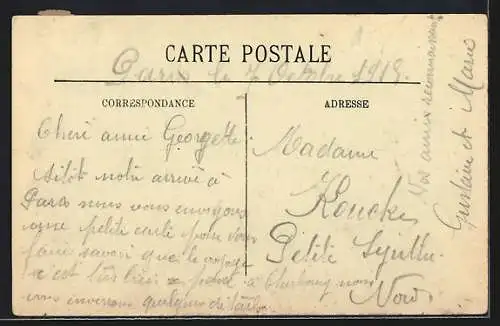 CARTE POSTALE
Paris le 7 Octobre 1919.
CORRESPONDANCE
Cheri amie Georgette
sitôt notre arrivé à
Paris nous vous envoyons
une petite carte pour vous
faire savoir que le voyage
s'est très bien passé à Cherbourg nous
vous enverrons quelques détails
ADRESSE
Madame
Petite Synthe
Nord
Vos amies reconnaissant
Gustave et Marie